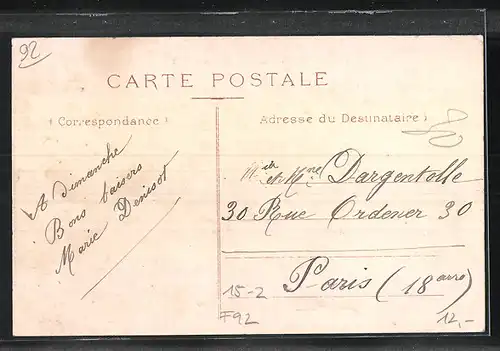 92
CARTE POSTALE
(Correspondance)
Adresse du Destinataire)
A dimanche
Bons baisers
Marie Denisot
et Mme Dargentolle
30 Rue Ordener 30
Paris (18 arro)
15-2
F92
12,-